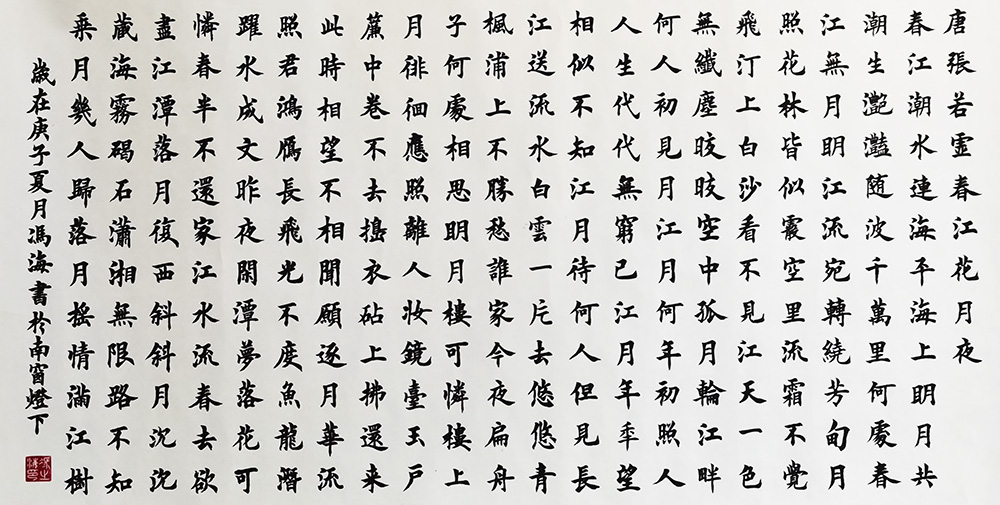 唐張若虛春江花月夜
春江潮水連海平海上明月共
潮生灩灩随波千萬里何處春
江無月明江流宛轉繞芳甸月
照花林皆似霰空里流霜不覺
飛汀上白沙看不見江天一色
無纖塵皎皎空中孤月輪江畔
何人初見月江月何年初照人
人生代代無窮已江月年年望
相似不知江月待何人但見長
江送流水白雲一片去悠悠青
楓浦上不勝愁誰家今夜扁舟
子何處相思明月樓可憐樓上
月徘徊應照離人妝鏡臺玉戶
簾中卷不去搗衣砧上拂還来
此時相望不相聞願逐月華流
照君鴻雁長飛光不度魚龍潛
躍水成文昨夜閑潭夢落花可
憐春半不還家江水流春去欲
盡江潭落月復西斜斜月沉沉
藏海霧碣石瀟湘無限路不知
乘月幾人歸落月搖情滿江樹
歲在庚子夏月馮海書於南窗燈下